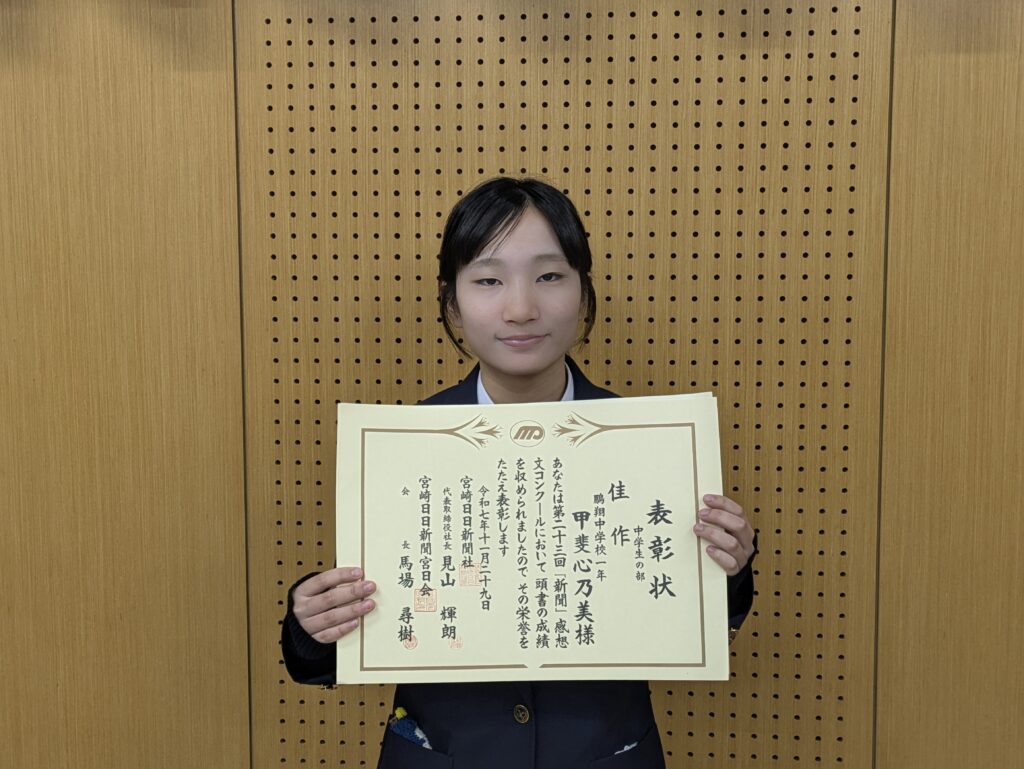 表彰状
中学生の部
佳作
鵬翔中学校一年
甲斐心乃美様
あなたは第二十三回「新聞」感想
文コンクールにおいて頭書の成績
を収められましたので その栄誉を
たたえ表彰します
令和七年十一月二十九日
宮崎日日新聞社
代表取締役社長 見山輝朗
宮崎日日新聞宮日会
会長 馬場尋樹